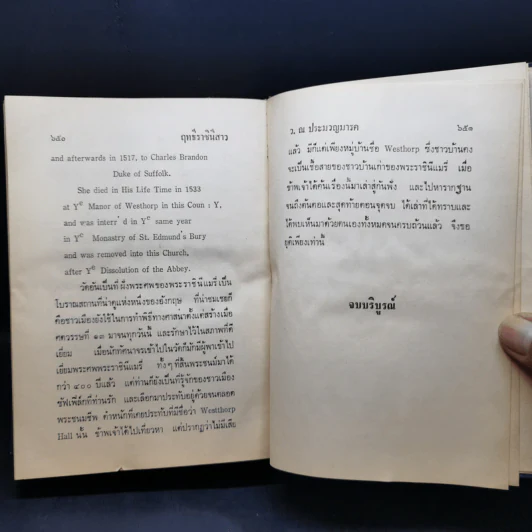 ๖๕๐ ฤทธิ์ราชินีสาว
and afterwards in 1517, to Charles Brandon
Duke of Suffolk.
She died in His Life Time in 1533
at Yᵉ Manor of Westhorp in this Coun : Y,
and was interr'd in Yᵉ same year
in Yᵉ Monastry of St. Edmund's Bury
and was removed into this Church,
after Yᵉ Dissolution of the Abbey.
วัดอันเป็นที่ฝังพระศพของพระราชินีแมรี่เป็น
โบราณสถานที่น่าดูแห่งหนึ่งของอังกฤษ ที่น่าชมเชยก็
คือชาวเมืองยังใช้ในการทำพิธีทางศาสนาตั้งแต่สร้างเมื่อ
ศตวรรษที่ ๑๓ มาจนทุกวันนี้ และรักษาไว้ในสภาพที่ดี
เยี่ยม เมื่อนักทัศนาจรเข้าไปในวัดก็มักมีผู้พาเข้าไป
เยี่ยมพระศพพระราชินีแมรี่ ทั้งๆ ที่สิ้นพระชนม์มาได้
กว่า ๔๐๐ ปีแล้ว แต่ท่านก็ยังเป็นที่รู้จักของชาวเมือง
ซัฟเฟิล์กที่ท่านรัก และเลือกมาประทับอยู่ด้วยจนตลอด
พระชนมชีพ ตำหนักที่เคยประทับที่มีชื่อว่า Westhorp
Hall นั้น ข้าพเจ้าได้ไปเที่ยวหา แต่ปรากฏว่าไม่มีเสีย
ว. ณ ประมวญมารค ๖๕๑
แล้ว มีก็แต่เพียงหมู่บ้านชื่อ Westhorp ซึ่งชาวบ้านคง
จะเป็นเชื้อสายของชาวบ้านเก่าของพระราชินีแมรี่ เมื่อ
ข้าพเจ้าได้ค้นเรื่องนี้มาเล่าสู่กันฟัง และไปหารากฐาน
จนถึงต้นตอและสุดท้ายตอนจุดจบ ได้เล่าที่ได้ทราบและ
ได้พบเห็นมาด้วยตนเองทั้งหมดจนครบถ้วนแล้ว จึงขอ
ยุติเพียงเท่านี้
จบบริบูรณ์